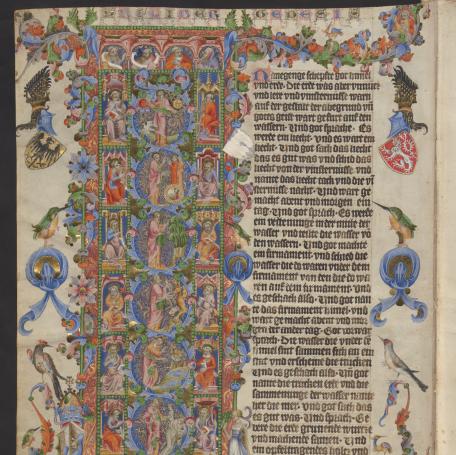 LIBER GENESIS
Anegenge schepfte got himel
vnd erde. Die erde was aber vnnucz
vnd lere vnd vinsternisse warn
auf der
gotes geist wart gefurt auf den
wassern. Vnd got sprach. Es
werde ein liecht. vnd es wart ein
liecht. Vnd got sach das liecht
das es gut was vnd schid das
liecht von der vinsternisse. vnd
nante das liecht tach vnd die vin
sternisse nacht. Vnd wart ge
macht abent vnd morgen ein
tag. Vnd got sprach. Es werde
ein vestenunge in der mitte der
wasser vnd teile die wasser vo
den wassern. Vnd got machte
ein firmament. vnd schid die
wasser die do waren vnder dem
firmament von den die do wa
ren auf dem firmament. Vnd
es geschach also. Vnd got nan
te das firmament himel. vnd
wart gemacht abent vnd mor
gen der ander tag. Got
sprach. Die wasser die vnder de
himel sint sammen sich an ein
stat vnd erscheine die trucken
Vnd es geschach also. Vnd got
nante die trucken erde vnd die
sammenunge der wasser nante
her die mer. Vnd got sach das
es gut was. Vnd sprach. Ge
bere die erde grunende wurcze
vnd machende samen. Vnd